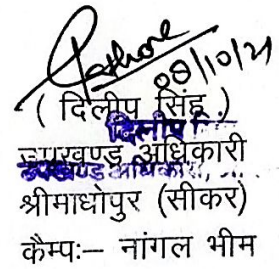 08/10/21
( दिलीप सिंह )
दिलीप
उपखण्ड अधिकारी
उपखण्ड अधिकारी,
श्रीमाधोपुर (सीकर)
कैम्प:– नांगल भीम